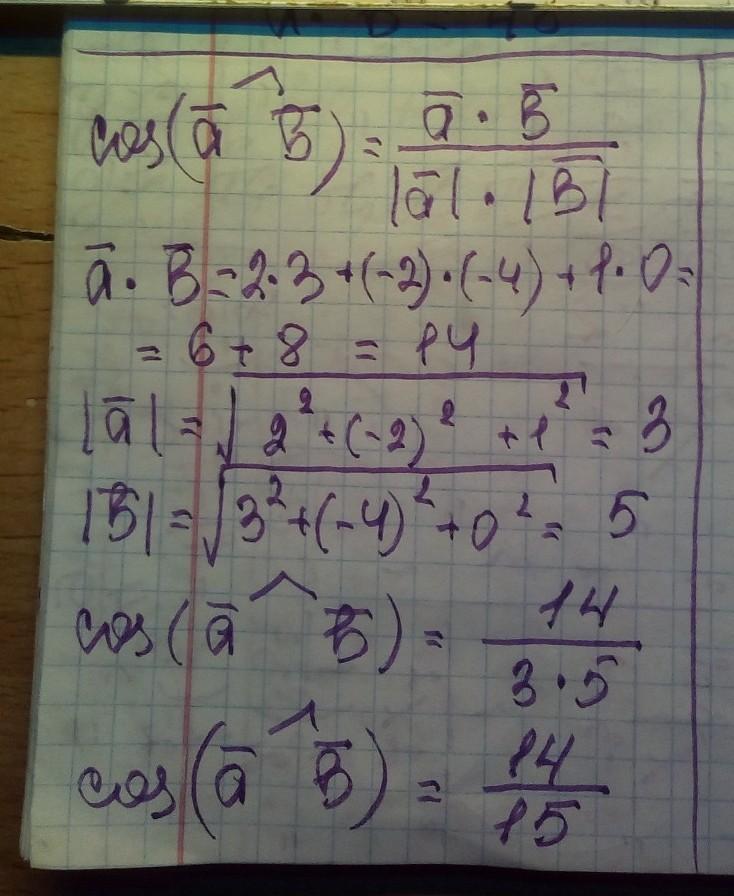 cos(a̅ ^ b̅) = a̅ · b̅ / |a̅| · |b̅|
a̅ · b̅ = 2·3 + (-2)·(-4) + 1·0 =
= 6 + 8 = 14
|a̅| = √(2² + (-2)² + 1²) = 3
|b̅| = √(3² + (-4)² + 0²) = 5
cos(a̅ ^ b̅) = 14 / 3·5
cos(a̅ ^ b̅) = 14 / 15